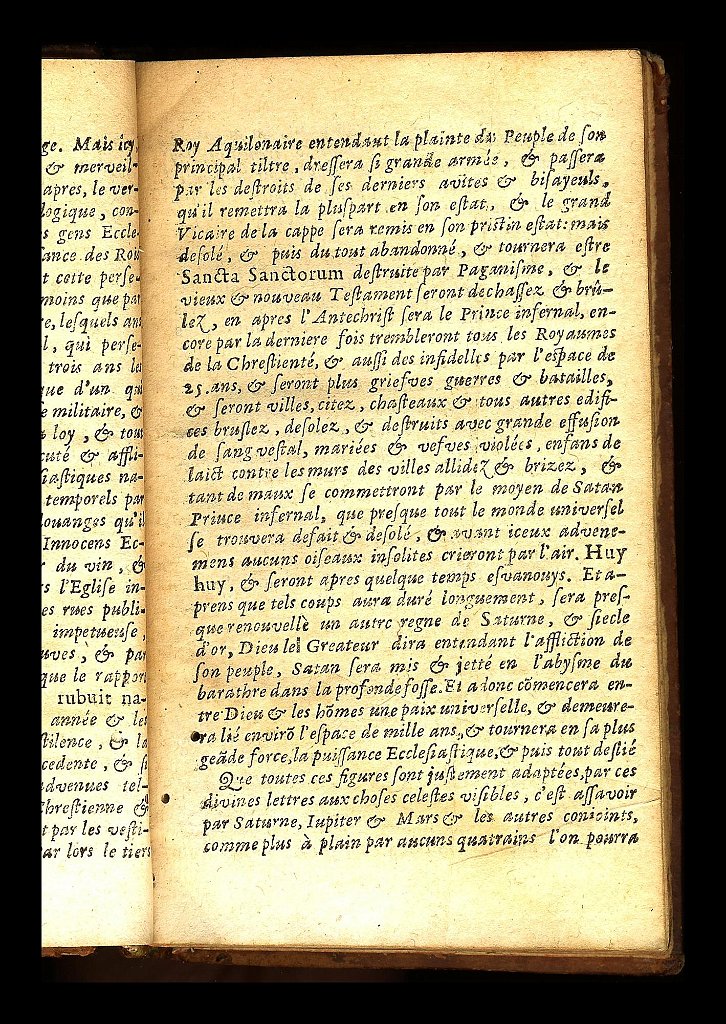 ge. Mais icy,
& merveil-
apres, le ver-
logique, con-
s gens Eccle-
sance des Roi
t cette perse-
moins que par
re, lesquels an
l, qui perse-
trois ans le
que d'un qui
e militaire, &
loy, & tou
cuté & affli-
siastiques na-
temporels par
louanges qu'il
Innocens Ec-
du vin, &
s l'Eglise in-
es rues publi-
impetueuse,
uves, & par
que le rapport
rubuit na-
année & les
stilence, & la
cedente, & si
advenues tel-
hrestienne &
t par les vesti-
ar lors le tiers
Roy Aquilonaire entendant la plainte du Peuple de son
principal tiltre, dressera si grande armée, & passera
par les destroits de ses derniers avites & bisayeuls,
qu'il remettra la pluspart en son estat, & le grand
Vicaire de la cappe sera remis en son pristin estat: mais
desolé, & puis du tout abandonné, & tournera estre
Sancta Sanctorum destruite par Paganisme, & le
vieux & nouveau Testament seront dechassez & brû-
lez, en apres l'Antechrist sera le Prince infernal, en-
core par la derniere fois trembleront tous les Royaumes
de la Chrestienté, & aussi des infidelles par l'espace de
25. ans, & seront plus griefves guerres & batailles,
& seront villes, citez, chasteaux & tous autres edifi-
ces bruslez, desolez, & destruits avec grande effusion
de sang vestal, mariées & vefves violées, enfans de
laict contre les murs des villes allidez & brizez, &
tant de maux se commettront par le moyen de Satan
Prince infernal, que presque tout le monde universel
se trouvera defait & desolé, & avant iceux advene-
mens aucuns oiseaux insolites crieront par l'air. Huy
huy, & seront apres quelque temps esvanouys. Et a-
prens que tels coups aura duré longuement, sera pres-
que renouvellé un autre regne de Saturne, & siecle
d'or, Dieu le Greateur dira entendant l'affliction de
son peuple, Satan sera mis & jetté en l'abysme du
barathre dans la profonde fosse. Et adonc cōmencera en-
tre Dieu & les hōmes une paix universelle, & demeure-
ra lié envirō l'espace de mille ans, & tournera en sa plus
geāde force, la puissance Ecclesiastique, & puis tout deslié
Que toutes ces figures sont justement adaptées, par ces
divines lettres aux choses celestes visibles, c'est assavoir
par Saturne, Iupiter & Mars & les autres conioints,
comme plus à plain par aucuns quatrains l'on pourra